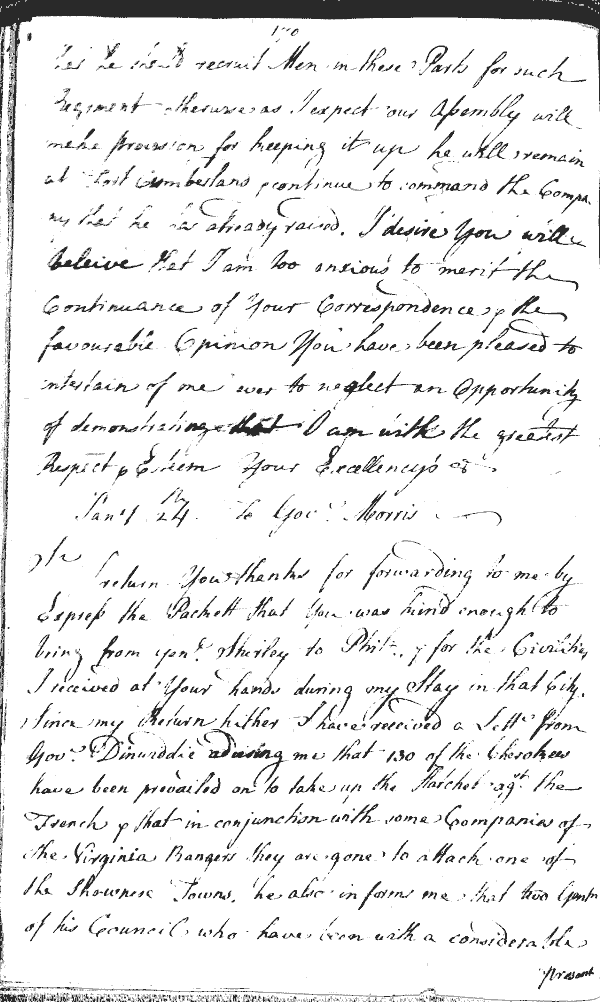 170
he should recruit Men in these Parts for such
Regiment otherwise as I expect our Assembly will
make provision for keeping it up he will remain
at Fort Cumberland & continue to command the Compa
ny that he has already raised. I desire You will
beleive that I am too anxious to merit the
Continuance of Your Correspondence & the
favourable Opinion You have been pleased to
entertain of me ever to neglect an Opportunity
of demonstrating that I am with the greatest
Respect & Esteem Your Excellency's &c
Jany 24th To Govr. Morris
Sir
I return You thanks for forwarding to me by
Express the Packett that You was kind enough to
bring from Genl. Shirley to Phila. & for the Civilities
I received at Your hands during my Stay in that City.
Since my Return hither I have received a Lettr from
Govr. Dinwiddie advising me that 130 of the Cherokees
have been prevailed on to take up the Hatchet agst. the
French & that in conjunction with some Companies of
the Virginia Rangers they are gone to attack one of
the Shawnese Towns. he also informs me that two Gentn
of his Council who have been with a considerable
present